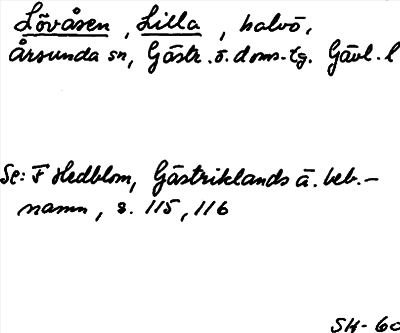 Lövåsen, Lilla, halvö,
Årsunda sn, Gästr. ö. doms-tg. Gävl. l
Se: F Hedblom, Gästriklands ä. beb.-
namn, s. 115, 116
SH-60